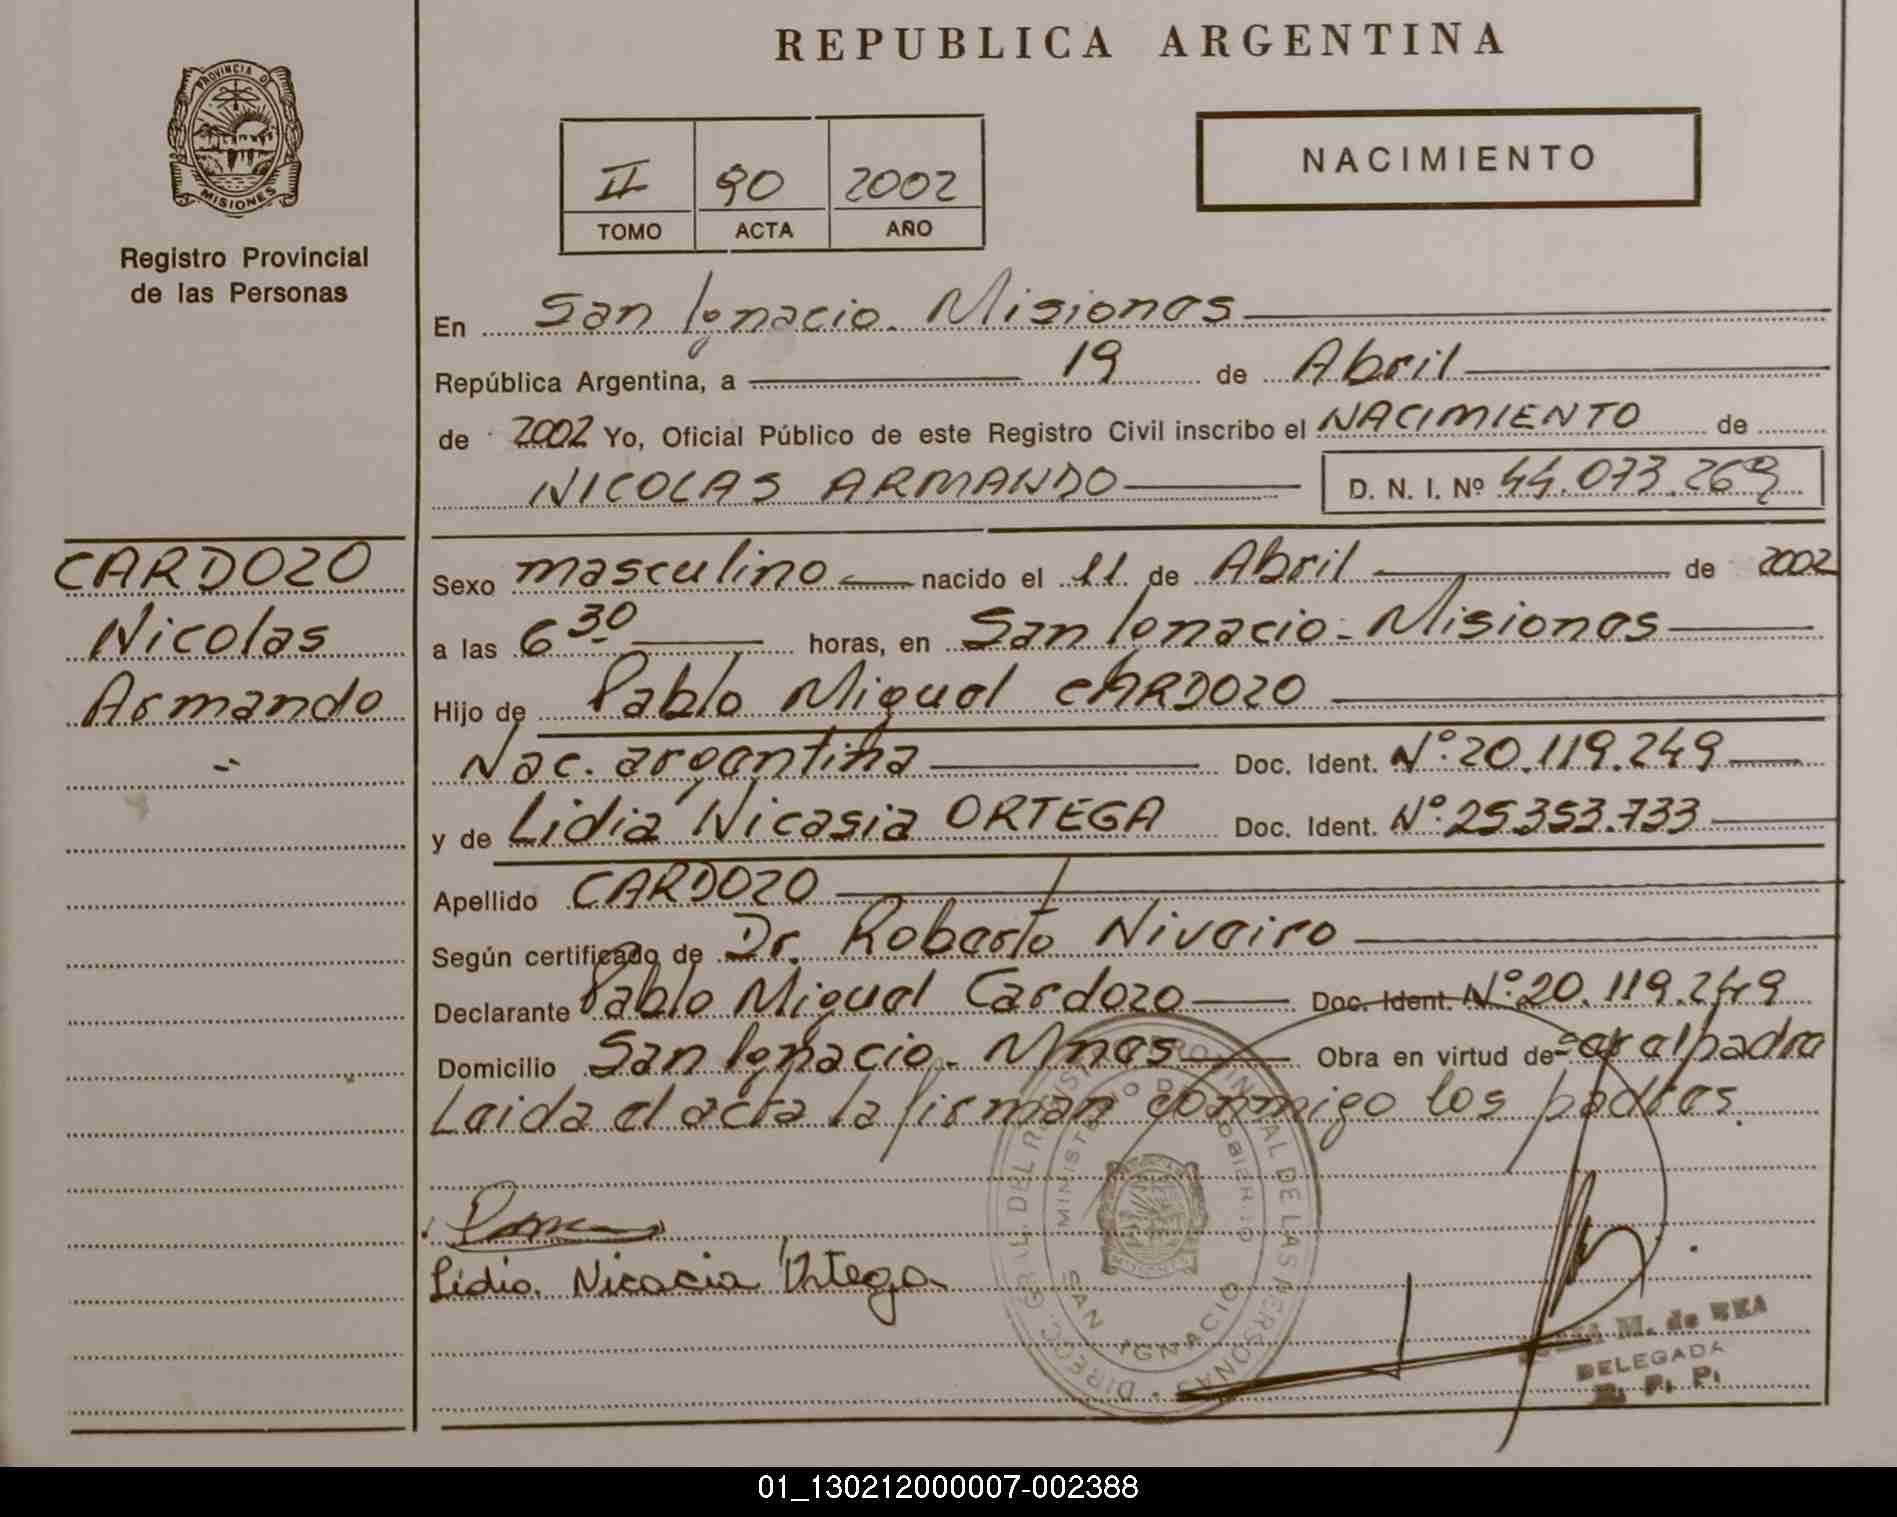 REPUBLICA ARGENTINA
PROVINCIA DE
MISIONES
Registro Provincial
de las Personas
II 90 2002
TOMO ACTA AÑO
NACIMIENTO
En San Ignacio. Misiones
República Argentina, a 19 de Abril
de 2002 Yo, Oficial Público de este Registro Civil inscribo el NACIMIENTO de
NICOLAS ARMANDO D. N. I. Nº 44.073.269
CARDOZO
Nicolas
Armando
Sexo masculino nacido el 11 de Abril de 2002
a las 6 30 horas, en San Ignacio - Misiones
Hijo de Pablo Miguel CARDOZO
Nac. argentina Doc. Ident. Nº 20.119.249
y de Lidia Nicasia ORTEGA Doc. Ident. Nº 25.353.733
Apellido CARDOZO
Según certificado de Dr. Roberto Niveiro
Declarante Pablo Miguel Cardozo Doc. Ident. Nº 20.119.249
Domicilio San Ignacio - Mnes Obra en virtud de ser el padre
Leida el acta la firman conmigo los padres.
Lidia. Nicacia Ortega
DIREC. GRAL. DEL REGISTRO PROVINCIAL DE LAS PERSONAS
MINISTERIO DE GOBIERNO
SAN IGNACIO
M. de
DELEGADA
R. P. P.
01_130212000007-002388